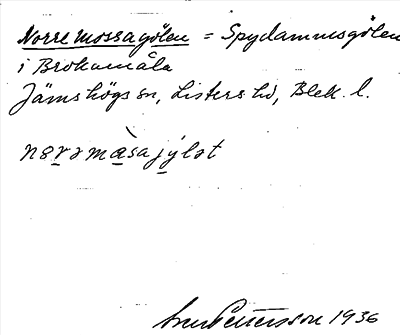 Norre mossagölen = Spydammsgölen
i Brokamåla
Jämshögs sn, Listers hd, Blek. l.
nørəmàsajyl̥ət
Sven Pettersson 1936